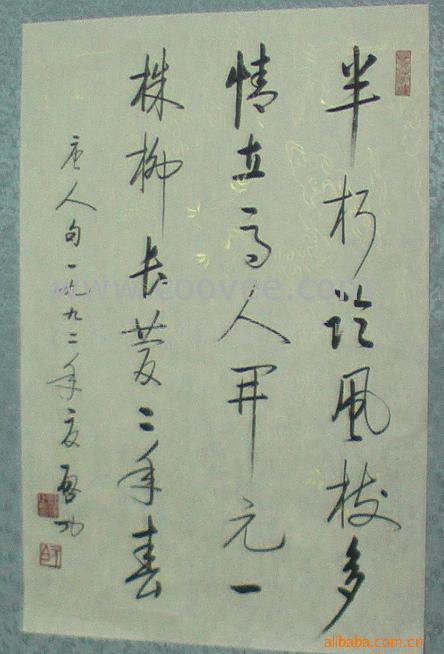 半朽臨風樹多
情立馬人開元一
株柳長慶二年春
唐人句一九九二年夏 啟功
www.coovee.com
alibaba.com.cn